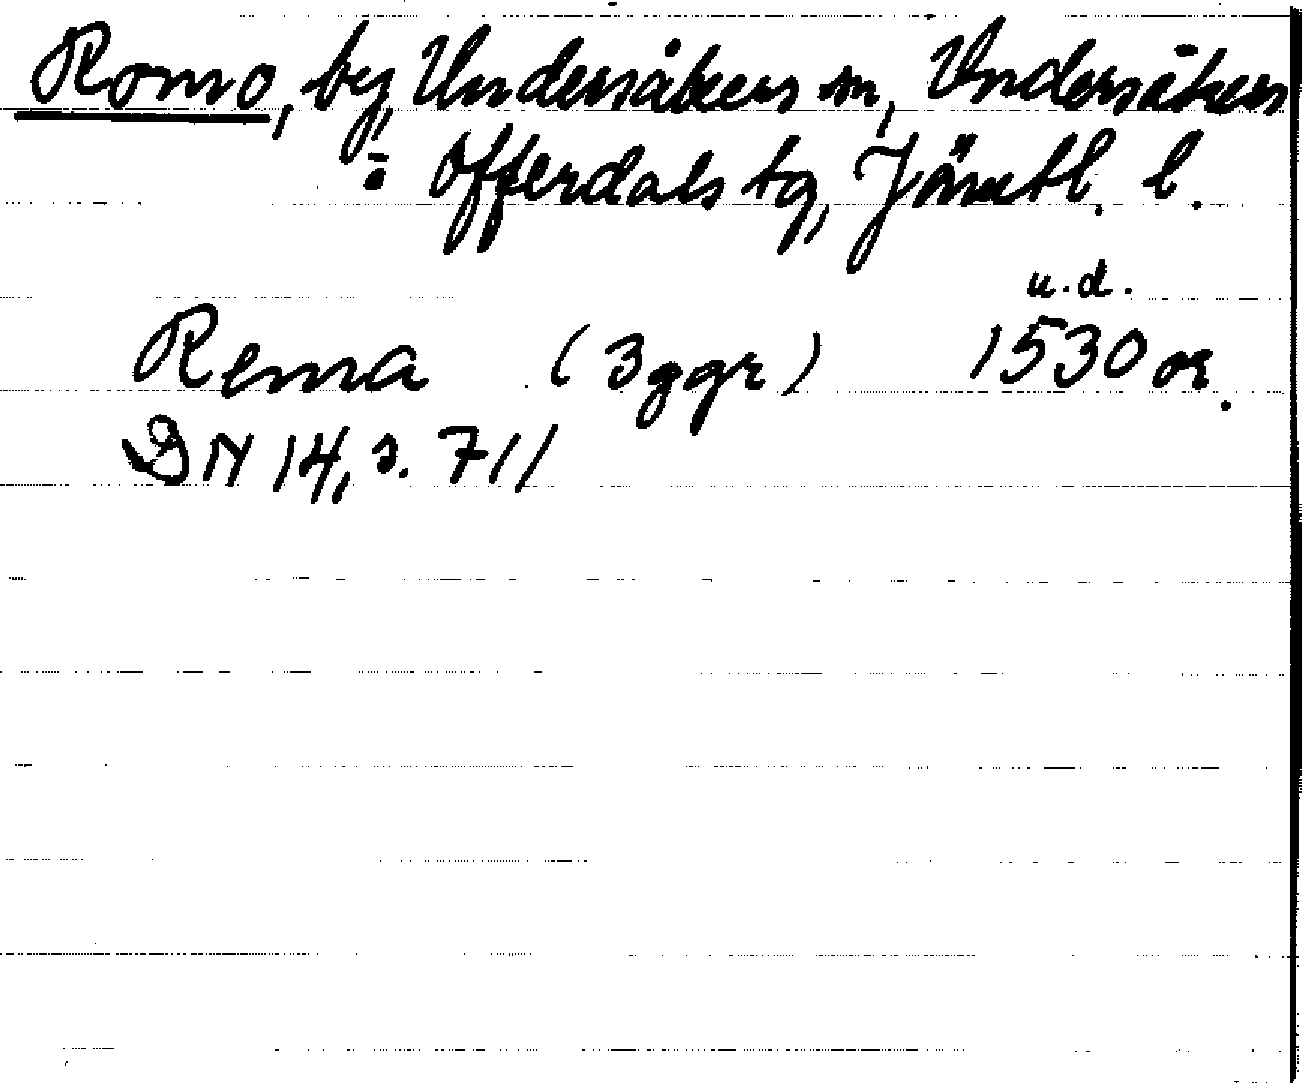 Romo, by, Undersåkers sn, Undersåkers
o. Offerdals tg, Jämtl. l.
u.d.
Rema (3 ggr) 1530 or.
DN 14, s. 711